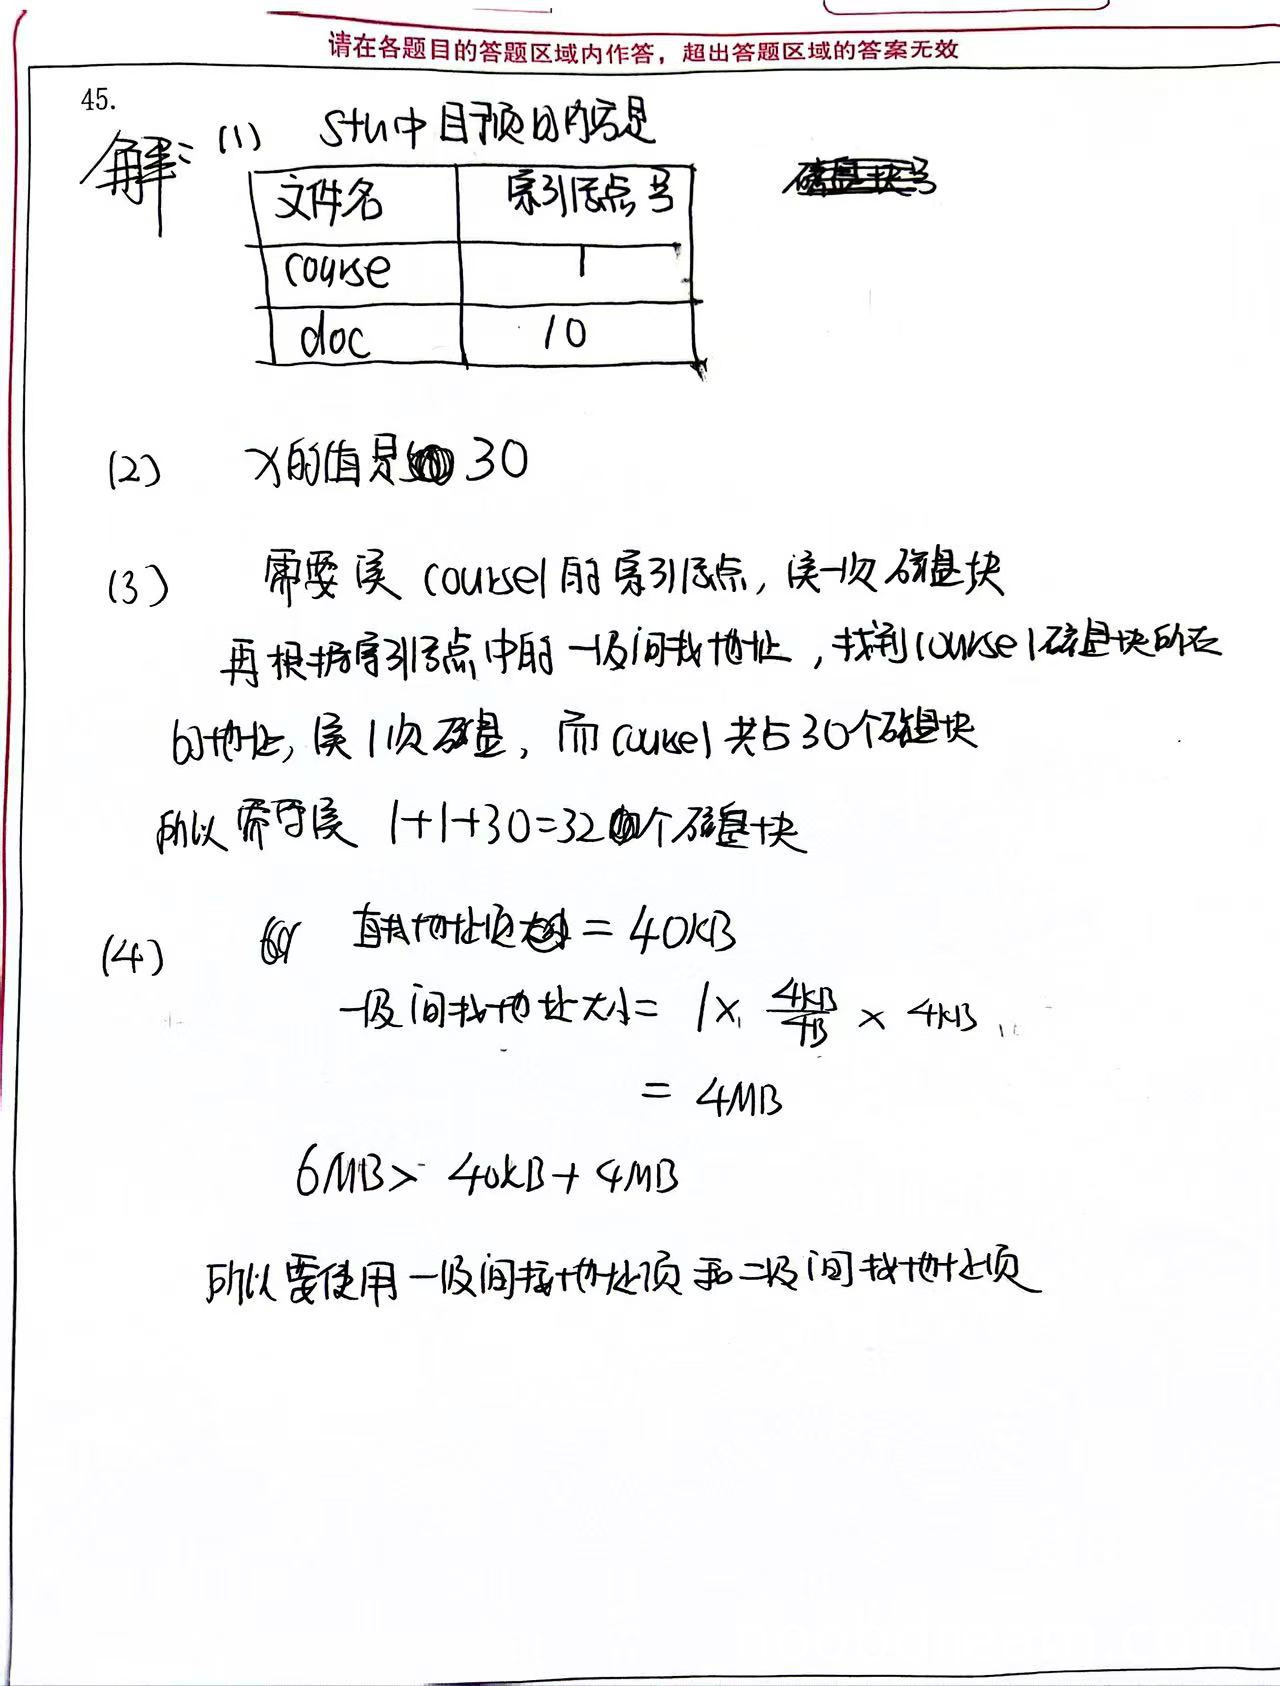 请在各题目的答题区域内作答，超出答题区域的答案无效
45.
解: (1) stu中目录项的内容是
文件名 索引结点号
course 1
doc 10
(2) x的值是 30
(3) 需要读 course1的索引结点, 读一次磁盘块
再根据索引结点中的一级间接地址, 找到course1磁盘块所在
的地址, 读1次磁盘, 而course1共占30个磁盘块
所以需要读 1+1+30=32个磁盘块
(4) 直接地址项 = 40KB
一级间接地址大小= 1× 4KB/4B × 4KB
= 4MB
6MB> 40KB+4MB
所以要使用一级间接地址项和二级间接地址项